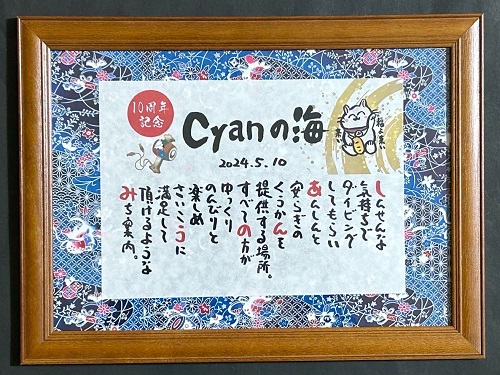 10周年
記念
Cyanの海
2024.5.10
福よ来い
しんせんな
気持ちで
ダイビング
してもらい
あんしんと
安らぎの
くうかんを
提供する場所。
すべての方が
ゆっくり
のんびりと
楽しめ
さいこうに
満足して
頂けるような
みち案内。